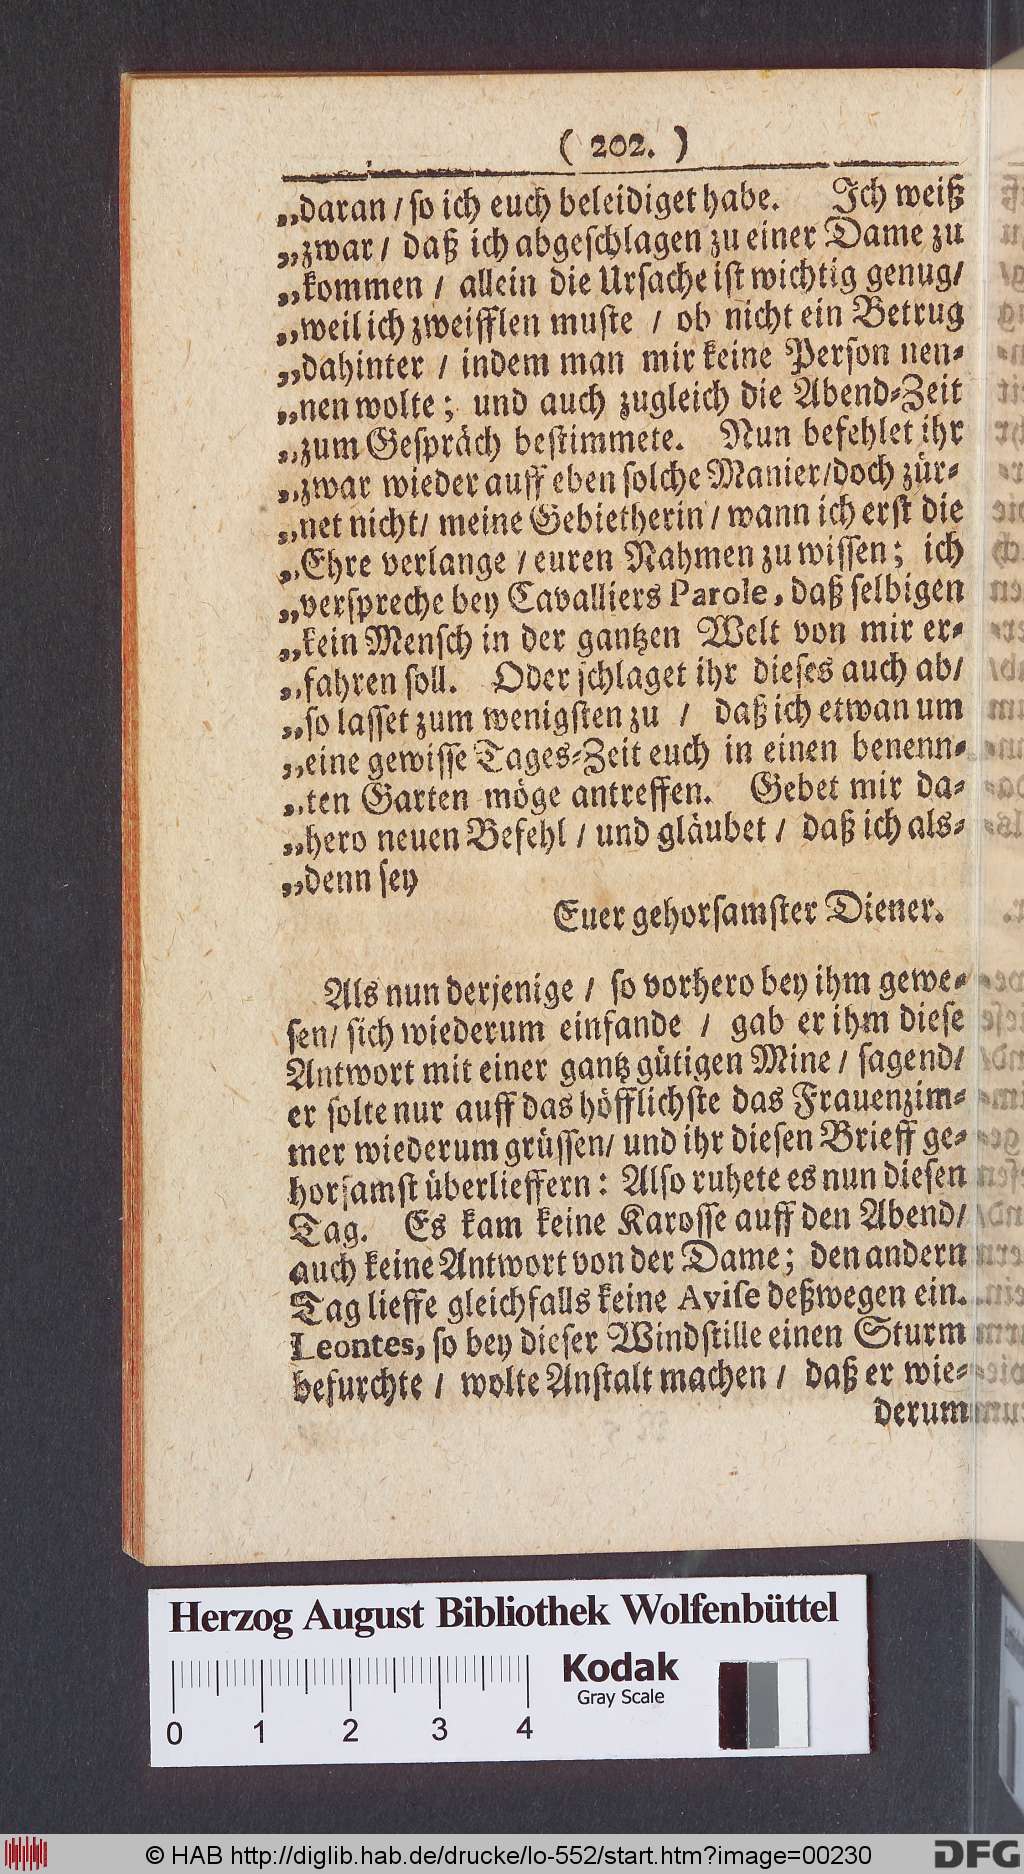 ( 202. )
„daran / so ich euch beleidiget habe. Ich weiß
„zwar / daß ich abgeschlagen zu einer Dame zu
„kommen / allein die Ursache ist wichtig genug/
„weil ich zweifflen muste / ob nicht ein Betrug
„dahinter / indem man mir keine Person nen-
„nen wolte; und auch zugleich die Abend-Zeit
„zum Gespräch bestimmete. Nun befehlet ihr
„zwar wieder auff eben solche Manier/doch zür-
„net nicht/ meine Gebietherin / wann ich erst die
„Ehre verlange / euren Nahmen zu wissen; ich
„verspreche bey Cavalliers Parole, daß selbigen
„kein Mensch in der gantzen Welt von mir er-
„fahren soll. Oder schlaget ihr dieses auch ab/
„so lasset zum wenigsten zu / daß ich etwan um
„eine gewisse Tages-Zeit euch in einen benenn-
„ten Garten möge antreffen. Gebet mir da-
„hero neuen Befehl / und gläubet / daß ich als-
„denn sey
Euer gehorsamster Diener.
Als nun derjenige / so vorhero bey ihm gewe-
sen/ sich wiederum einfande / gab er ihm diese
Antwort mit einer gantz gütigen Mine / sagend/
er solte nur auff das höfflichste das Frauenzim-
mer wiederum grüssen/ und ihr diesen Brieff ge-
horsamst überlieffern: Also ruhete es nun diesen
Tag. Es kam keine Karosse auff den Abend/
auch keine Antwort von der Dame; den andern
Tag lieffe gleichfalls keine Avise deßwegen ein.
Leontes, so bey dieser Windstille einen Sturm
befurchte / wolte Anstalt machen / daß er wie-
derum
Herzog August Bibliothek Wolfenbüttel
Kodak
Gray Scale
0 1 2 3 4
© HAB http://diglib.hab.de/drucke/lo-552/start.htm?image=00230
DFG